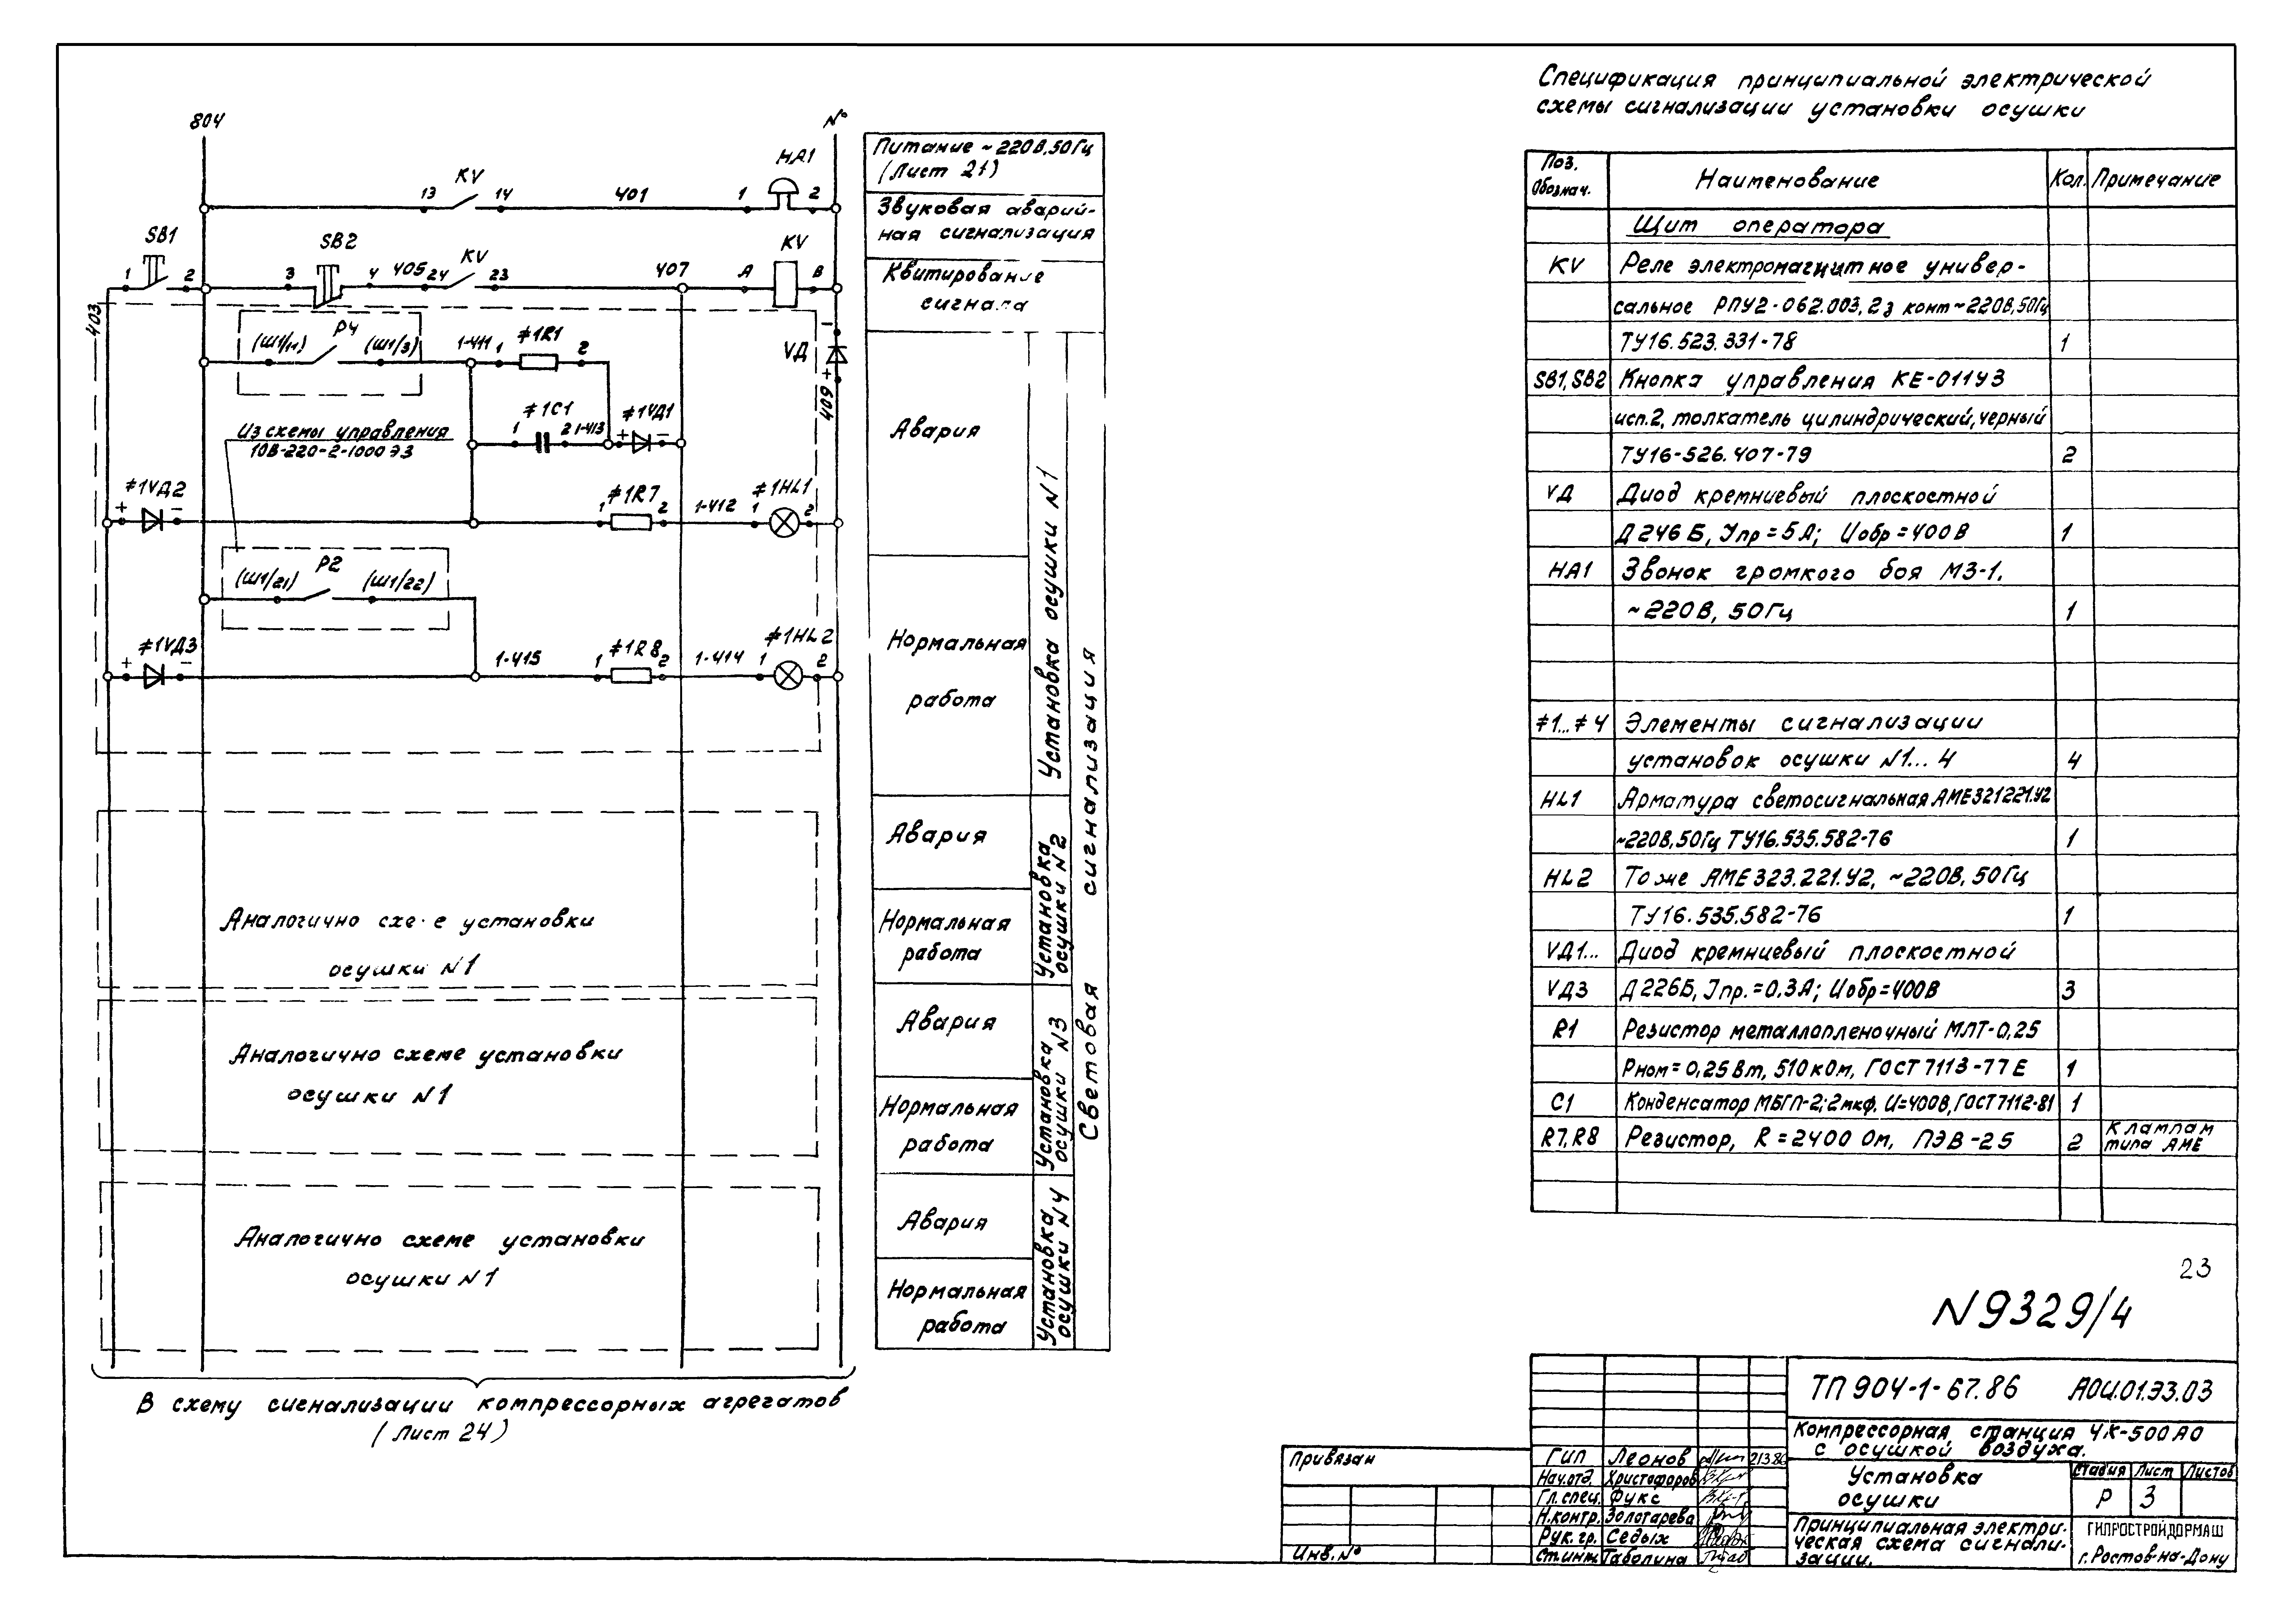 804
N°
KV
13
14
401
HA1
1
2
SB1
1
2
SB2
3
4
405
KV
24
23
407
KV
A
B
403
P4
(Ш1/11)
(Ш1/3)
1-411
1
≠1R1
2
VД
-
+
409
≠1C1
1
2
1-413
≠1VД1
+
-
Из схемы управления
10В-220-2-1000 ЭЗ
≠1VД2
+
-
≠1R7
1
2
1-412
≠1HL1
1
2
P2
(Ш1/21)
(Ш1/22)
≠1VД3
+
-
1-415
≠1R8
1
2
1-414
≠1HL2
1
2
Аналогично схе е установки
осушки N1
Аналогично схеме установки
осушки N1
Аналогично схеме установки
осушки N1
В схему сигнализации компрессорных агрегатов
(Лист 24)
Питание ~220В,50Гц
(Лист 21)
Звуковая аварий-
ная сигнализация
Квитирование
сигнала
Авария
Нормальная
работа
Установка осушки N1
Авария
Нормальная
работа
Установка
осушки N2
Авария
Нормальная
работа
Установка
осушки N3
Авария
Нормальная
работа
Установка
осушки N4
Световая сигнализация
Спецификация принципиальной электрической
схемы сигнализации установки осушки
Поз. Обознач. Наименование Кол. Примечание
Щит оператора
KV Реле электромагнитное универ-
сальное РПУ2-062.003, 2з конт ~220В,50Гц
ТУ16.523.331-78 1
SB1,SB2 Кнопка управления КЕ-011У3
исп.2, толкатель цилиндрический, черный
ТУ16-526.407-79 2
VД Диод кремниевый плоскостной
Д246Б, Iпр=5А; Uобр=400В 1
HA1 Звонок громкого боя МЗ-1.
~220В, 50Гц 1
≠1...≠4 Элементы сигнализации
установок осушки N1...4 4
HL1 Арматура светосигнальная АМЕ321221У2
~220В,50Гц ТУ16.535.582-76 1
HL2 То же АМЕ323.221.У2, ~220В, 50Гц
ТУ16.535.582-76 1
VД1... Диод кремниевый плоскостной
VД3 Д226Б, Iпр.=0,3А; Uобр=400В 3
R1 Резистор металлопленочный МЛТ-0,25
Рном=0,25Вт, 510кОм, ГОСТ7113-77Е 1
C1 Конденсатор МБГП-2; 2мкф. U=400В, ГОСТ7112-81 1
R7,R8 Резистор, R=2400 Ом, ПЭВ-25 2 К лампам
типа АМЕ
23
N9329/4
ТП 904-1-67.86 АОИ.01.ЭЗ.03
Компрессорная станция 4К-500АО
с осушкой воздуха.
Установка
осушки
Стадия Лист Листов
Р 3
Принципиальная электри-
ческая схема сигнали-
зации.
ГИПРОСТРОЙДОРМАШ
г.Ростов-на-Дону
Привязан
Инв.N°
ГИП Леонов 21386
Нач.отд. Христофоров
Гл.спец. Фукс
Н.контр. Золотарева
Рук.гр. Седых
Ст.инж. Таболина